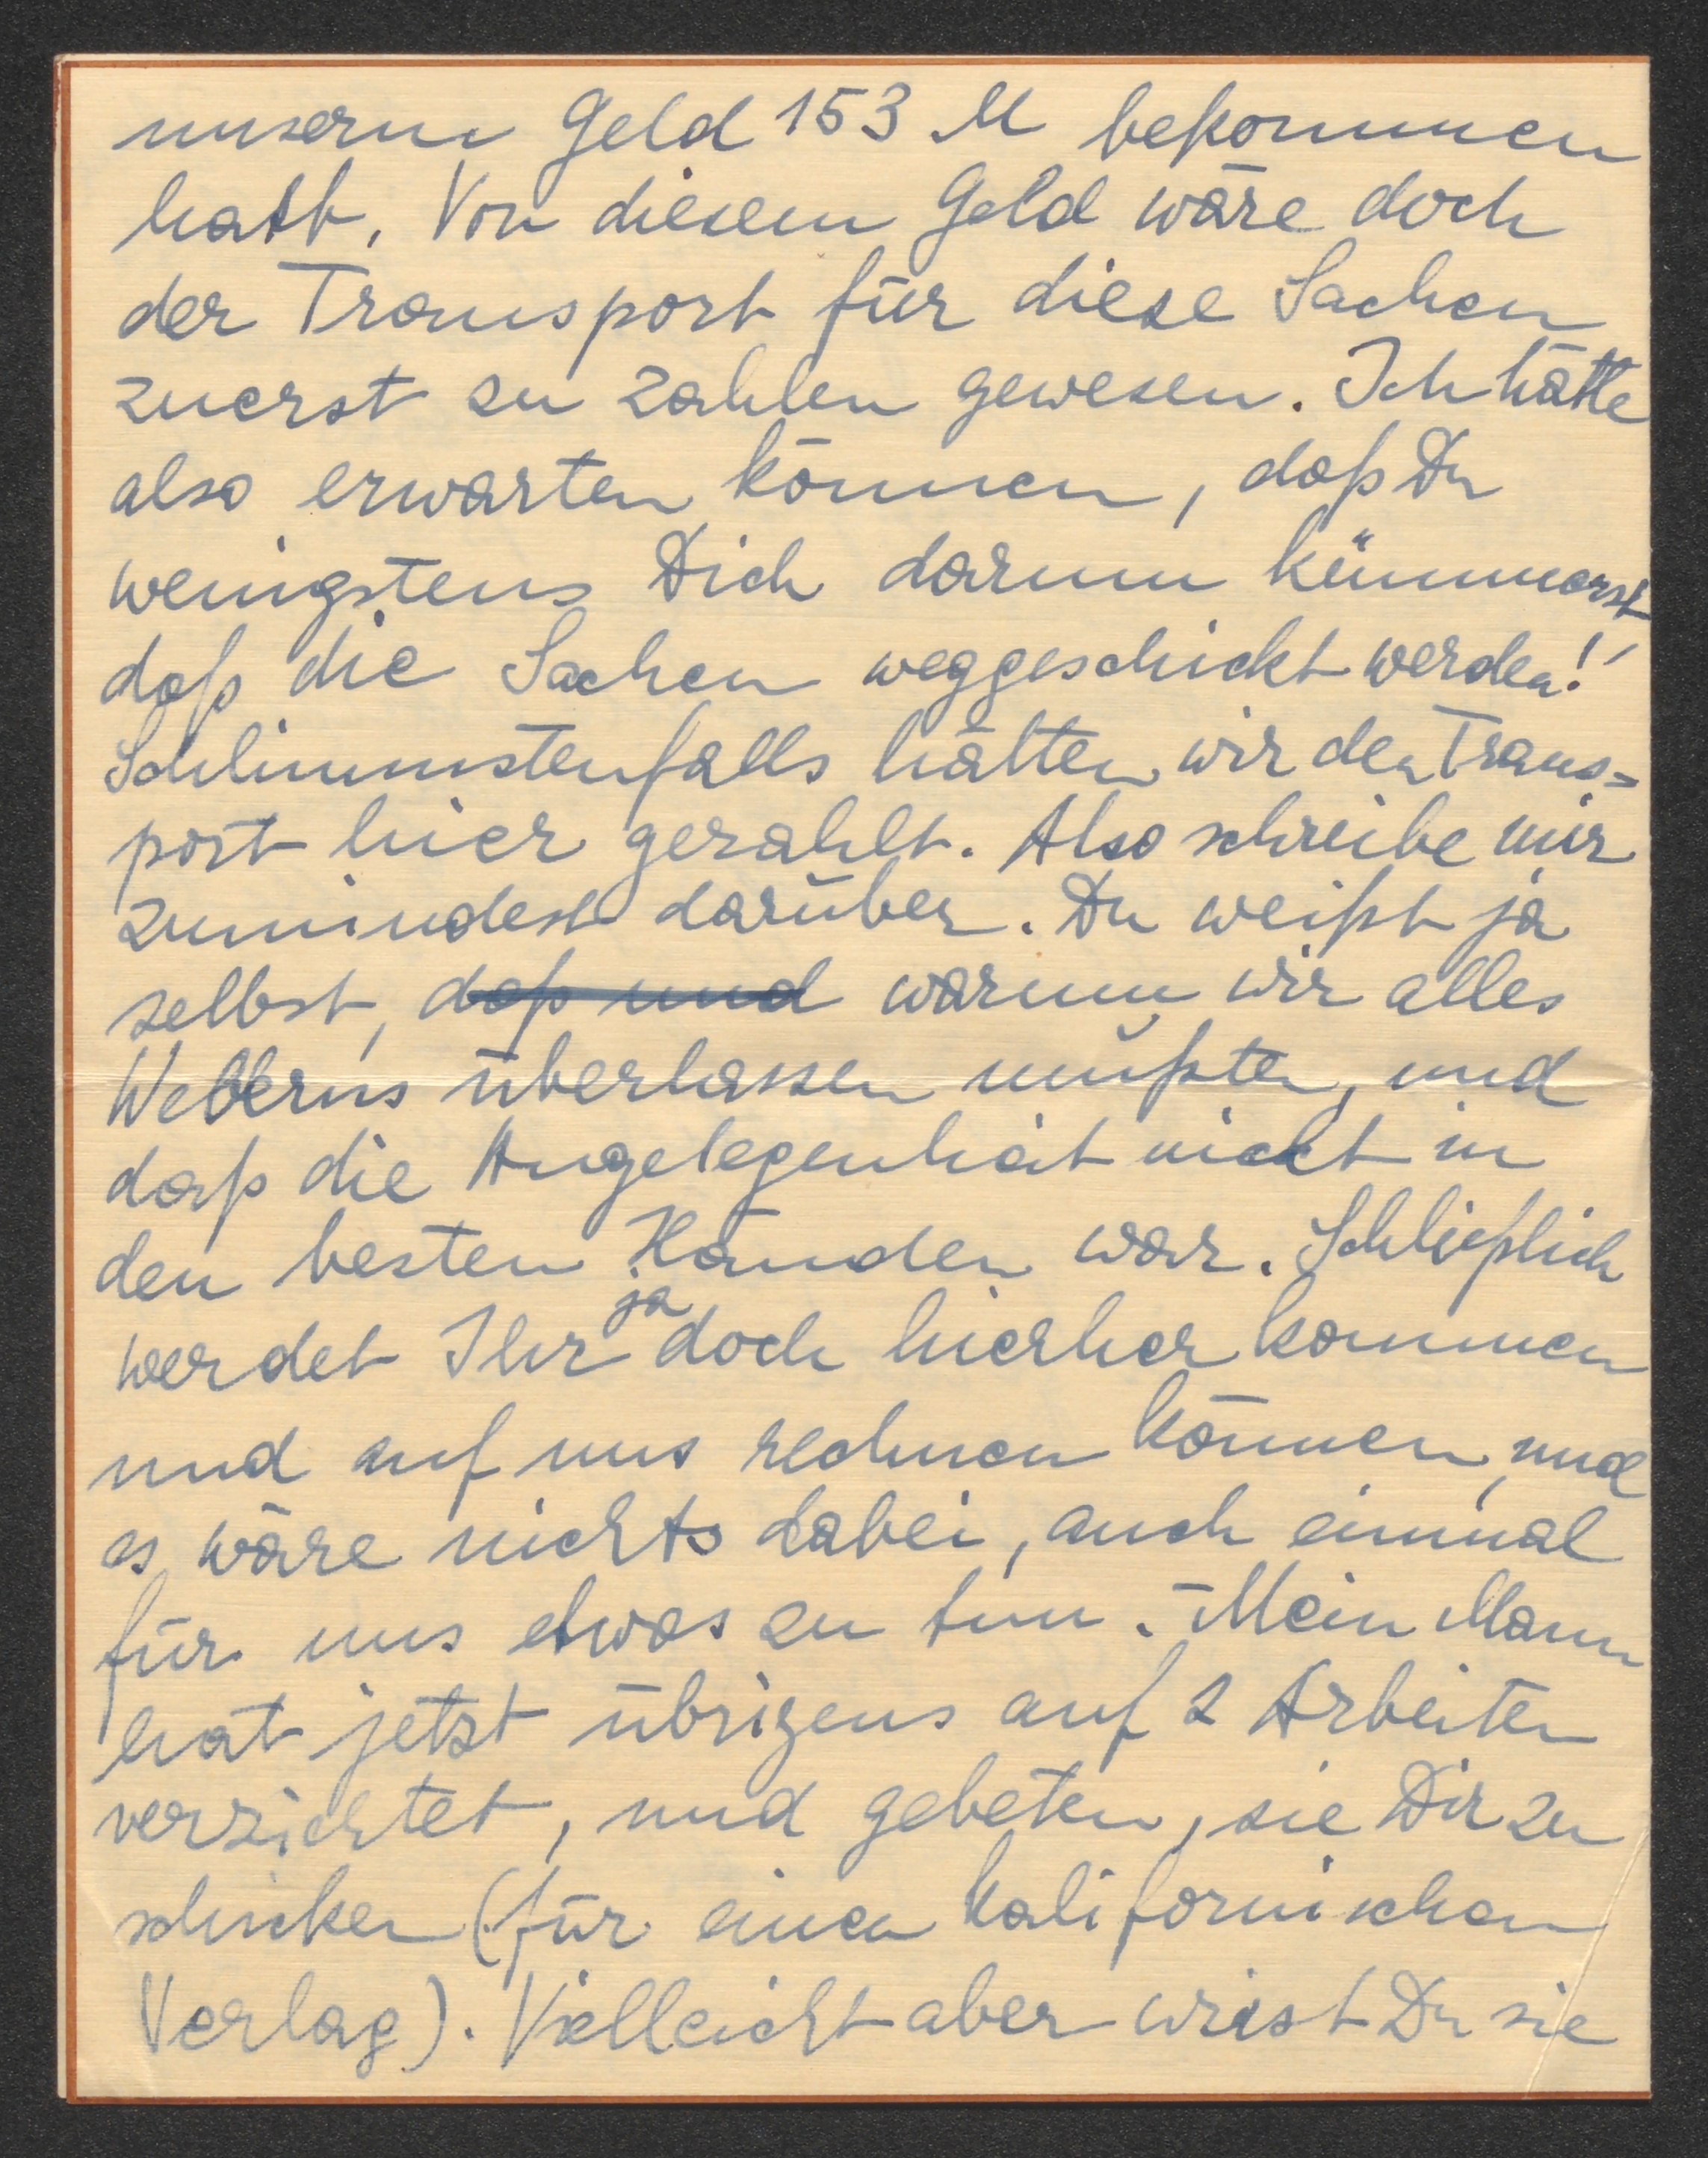 unserm Geld 153 M bekommen
hatt. Von diesem Geld wäre doch
der Transport für diese Sachen
zuerst zu zahlen gewesen. Ich hätte
also erwarten können, daß Du
wenigstens Dich darum kümmerst,
daß die Sachen weggeschickt werden!
Schlimmstenfalls hätten wir den Trans=
port hier gezahlt. Also schreibe mir
zumindest darüber. Du weißt ja
selbst, daß und warum wir alles
Weberns überlassen mußten, und
daß die Angelegenheit nicht in
den besten Händen war. Schließlich
werdet Ihr ja doch hierher kommen
und auf uns rechnen können, und
es wäre nichts dabei, auch einmal
für uns etwas zu tun. – Mein Mann
hat jetzt übrigens auf 2 Arbeiten
verzichtet, und gebeten, sie Dir zu
schicken (für einen kalifornischen
Verlag). Vielleicht aber wirst Du sie